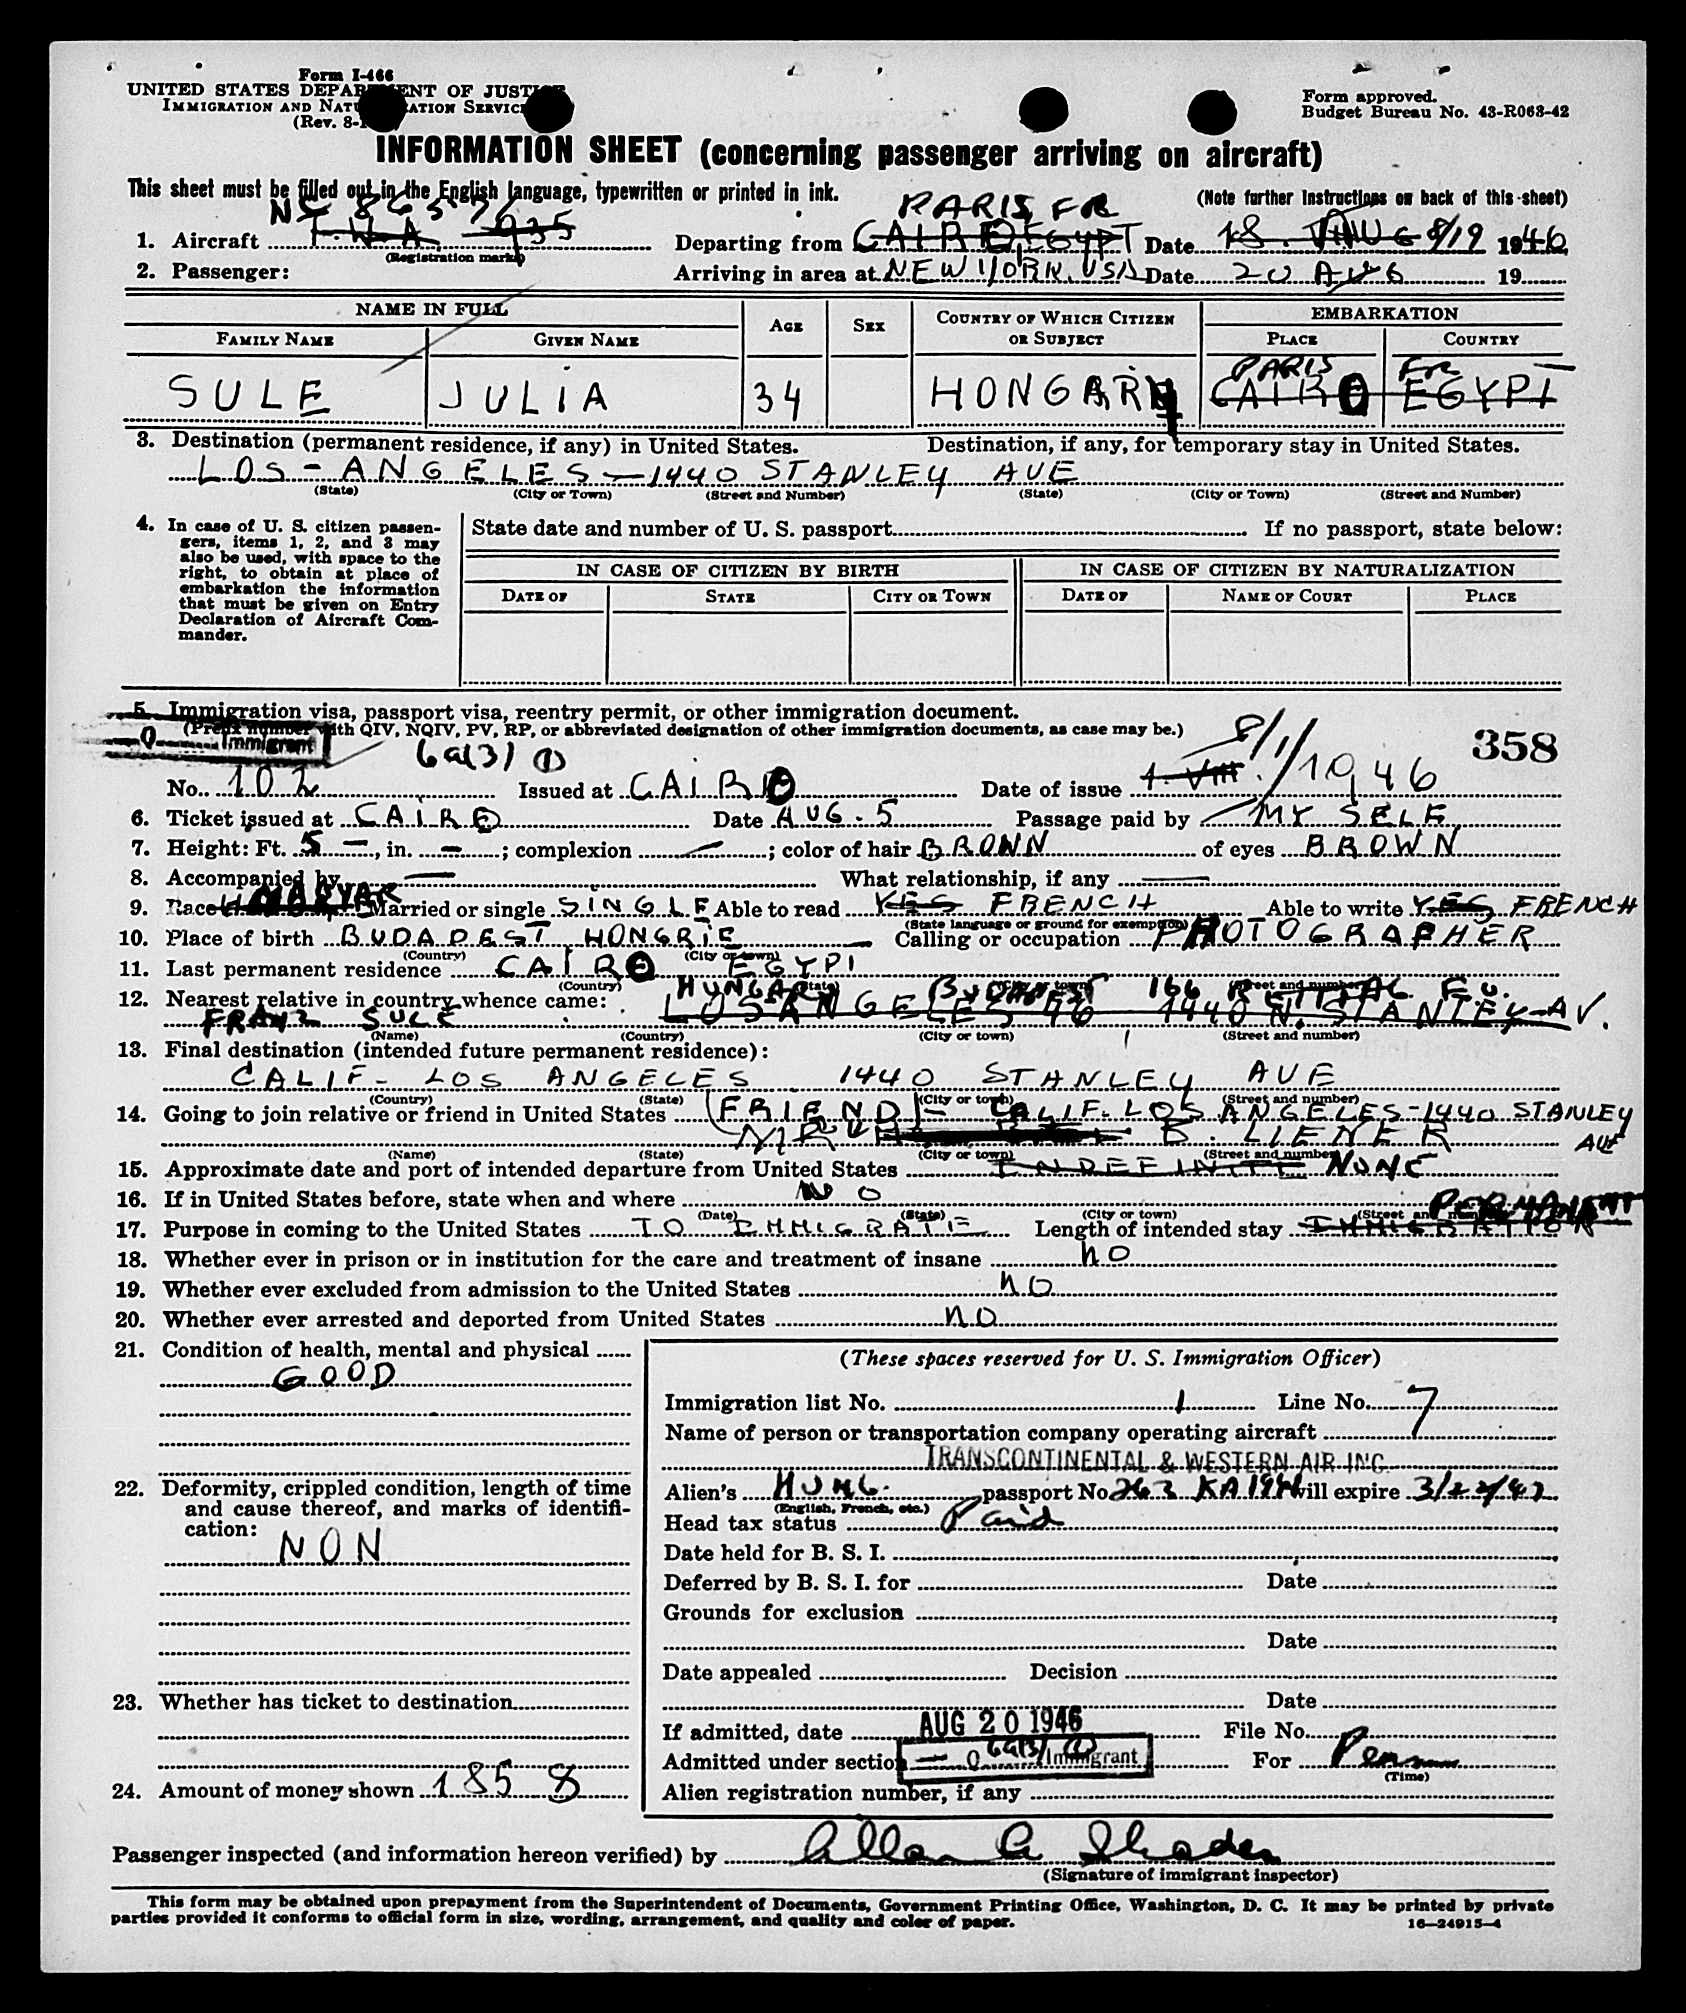 Form I-466
UNITED STATES DEPARTMENT OF JUSTICE
IMMIGRATION AND NATURALIZATION SERVICE
(Rev. 8-1
Form approved.
Budget Bureau No. 43-R063-42
INFORMATION SHEET (concerning passenger arriving on aircraft)
This sheet must be filled out in the English language, typewritten or printed in ink.
(Note further instructions on back of this sheet)
NC 86576 PARIS, FR
1. Aircraft T.W.A. 935 Departing from CAIRO, EGYPT Date 18. AUG 8/19 1946
(Registration marks)
2. Passenger: Arriving in area at NEW YORK. USA Date 20 AUG 19
NAME IN FULL AGE SEX COUNTRY OF WHICH CITIZEN OR SUBJECT EMBARKATION
FAMILY NAME GIVEN NAME PLACE COUNTRY
PARIS FR
SULE JULIA 34 HONGARY CAIRO EGYPT
3. Destination (permanent residence, if any) in United States. Destination, if any, for temporary stay in United States.
LOS-ANGELES-1440 STANLEY AVE
(State) (City or Town) (Street and Number) (State) (City or Town) (Street and Number)
4. In case of U. S. citizen passengers, items 1, 2, and 3 may also be used, with space to the right, to obtain at place of embarkation the information that must be given on Entry Declaration of Aircraft Commander.
State date and number of U. S. passport If no passport, state below:
IN CASE OF CITIZEN BY BIRTH IN CASE OF CITIZEN BY NATURALIZATION
DATE OF STATE CITY OR TOWN DATE OF NAME OF COURT PLACE
5. Immigration visa, passport visa, reentry permit, or other immigration document.
(Prefix number with QIV, NQIV, PV, RP, or abbreviated designation of other immigration documents, as case may be.)
Q Immigrant 6a(3) (1) 8/1/ 358
No. 102 Issued at CAIRO Date of issue 1. VIII. 1946
6. Ticket issued at CAIRO Date AUG. 5 Passage paid by MY SELF
7. Height: Ft. 5 -, in. -; complexion -; color of hair BROWN of eyes BROWN
8. Accompanied by - What relationship, if any -
9. Race MAGYAR Married or single SINGLE Able to read YES FRENCH Able to write YES FRENCH
(State language or ground for exemption)
10. Place of birth BUDAPEST HONGRIE Calling or occupation PHOTOGRAPHER
(Country) (City or town)
11. Last permanent residence CAIRO EGYPT
(Country) (State) (City or town) (Street and number)
12. Nearest relative in country whence came: HUNGARY 166
FRANZ SULE LOS ANGELES 46 1440 N. STANLEY AV.
(Name) (Country) (City or town) (Street and number)
13. Final destination (intended future permanent residence):
CALIF- LOS ANGELES 1440 STANLEY AVE
(Country) (State) (City or town) (Street and number)
14. Going to join relative or friend in United States (FRIEND)- CALIF. LOS ANGELES-1440 STANLEY AVE
B. LIENER
(Name) (State) (City or town) (Street and number)
15. Approximate date and port of intended departure from United States INDEFINITE NONE
16. If in United States before, state when and where NO
(Date) (State) (City or town) (Street and number)
PERMANENT
17. Purpose in coming to the United States TO IMMIGRATE Length of intended stay IMMIGRATION
18. Whether ever in prison or in institution for the care and treatment of insane NO
19. Whether ever excluded from admission to the United States NO
20. Whether ever arrested and deported from United States NO
21. Condition of health, mental and physical
GOOD
22. Deformity, crippled condition, length of time and cause thereof, and marks of identification:
NON
23. Whether has ticket to destination
24. Amount of money shown 185 $
(These spaces reserved for U. S. Immigration Officer)
Immigration list No. 1 Line No. 7
Name of person or transportation company operating aircraft
TRANSCONTINENTAL & WESTERN AIR INC.
Alien's HUNG. passport No 263 KA 1944 will expire 3/22/47
(English, French, etc.)
Head tax status Paid
Date held for B. S. I.
Deferred by B. S. I. for Date
Grounds for exclusion
Date
Date appealed Decision
Date
If admitted, date AUG 20 1946 File No.
Admitted under section Q 6a(3) (1) Immigrant For Perm
(Time)
Alien registration number, if any
Passenger inspected (and information hereon verified) by Allen A Shader
(Signature of immigrant inspector)
This form may be obtained upon prepayment from the Superintendent of Documents, Government Printing Office, Washington, D. C. It may be printed by private
parties provided it conforms to official form in size, wording, arrangement, and quality and color of paper.
16-24915-4